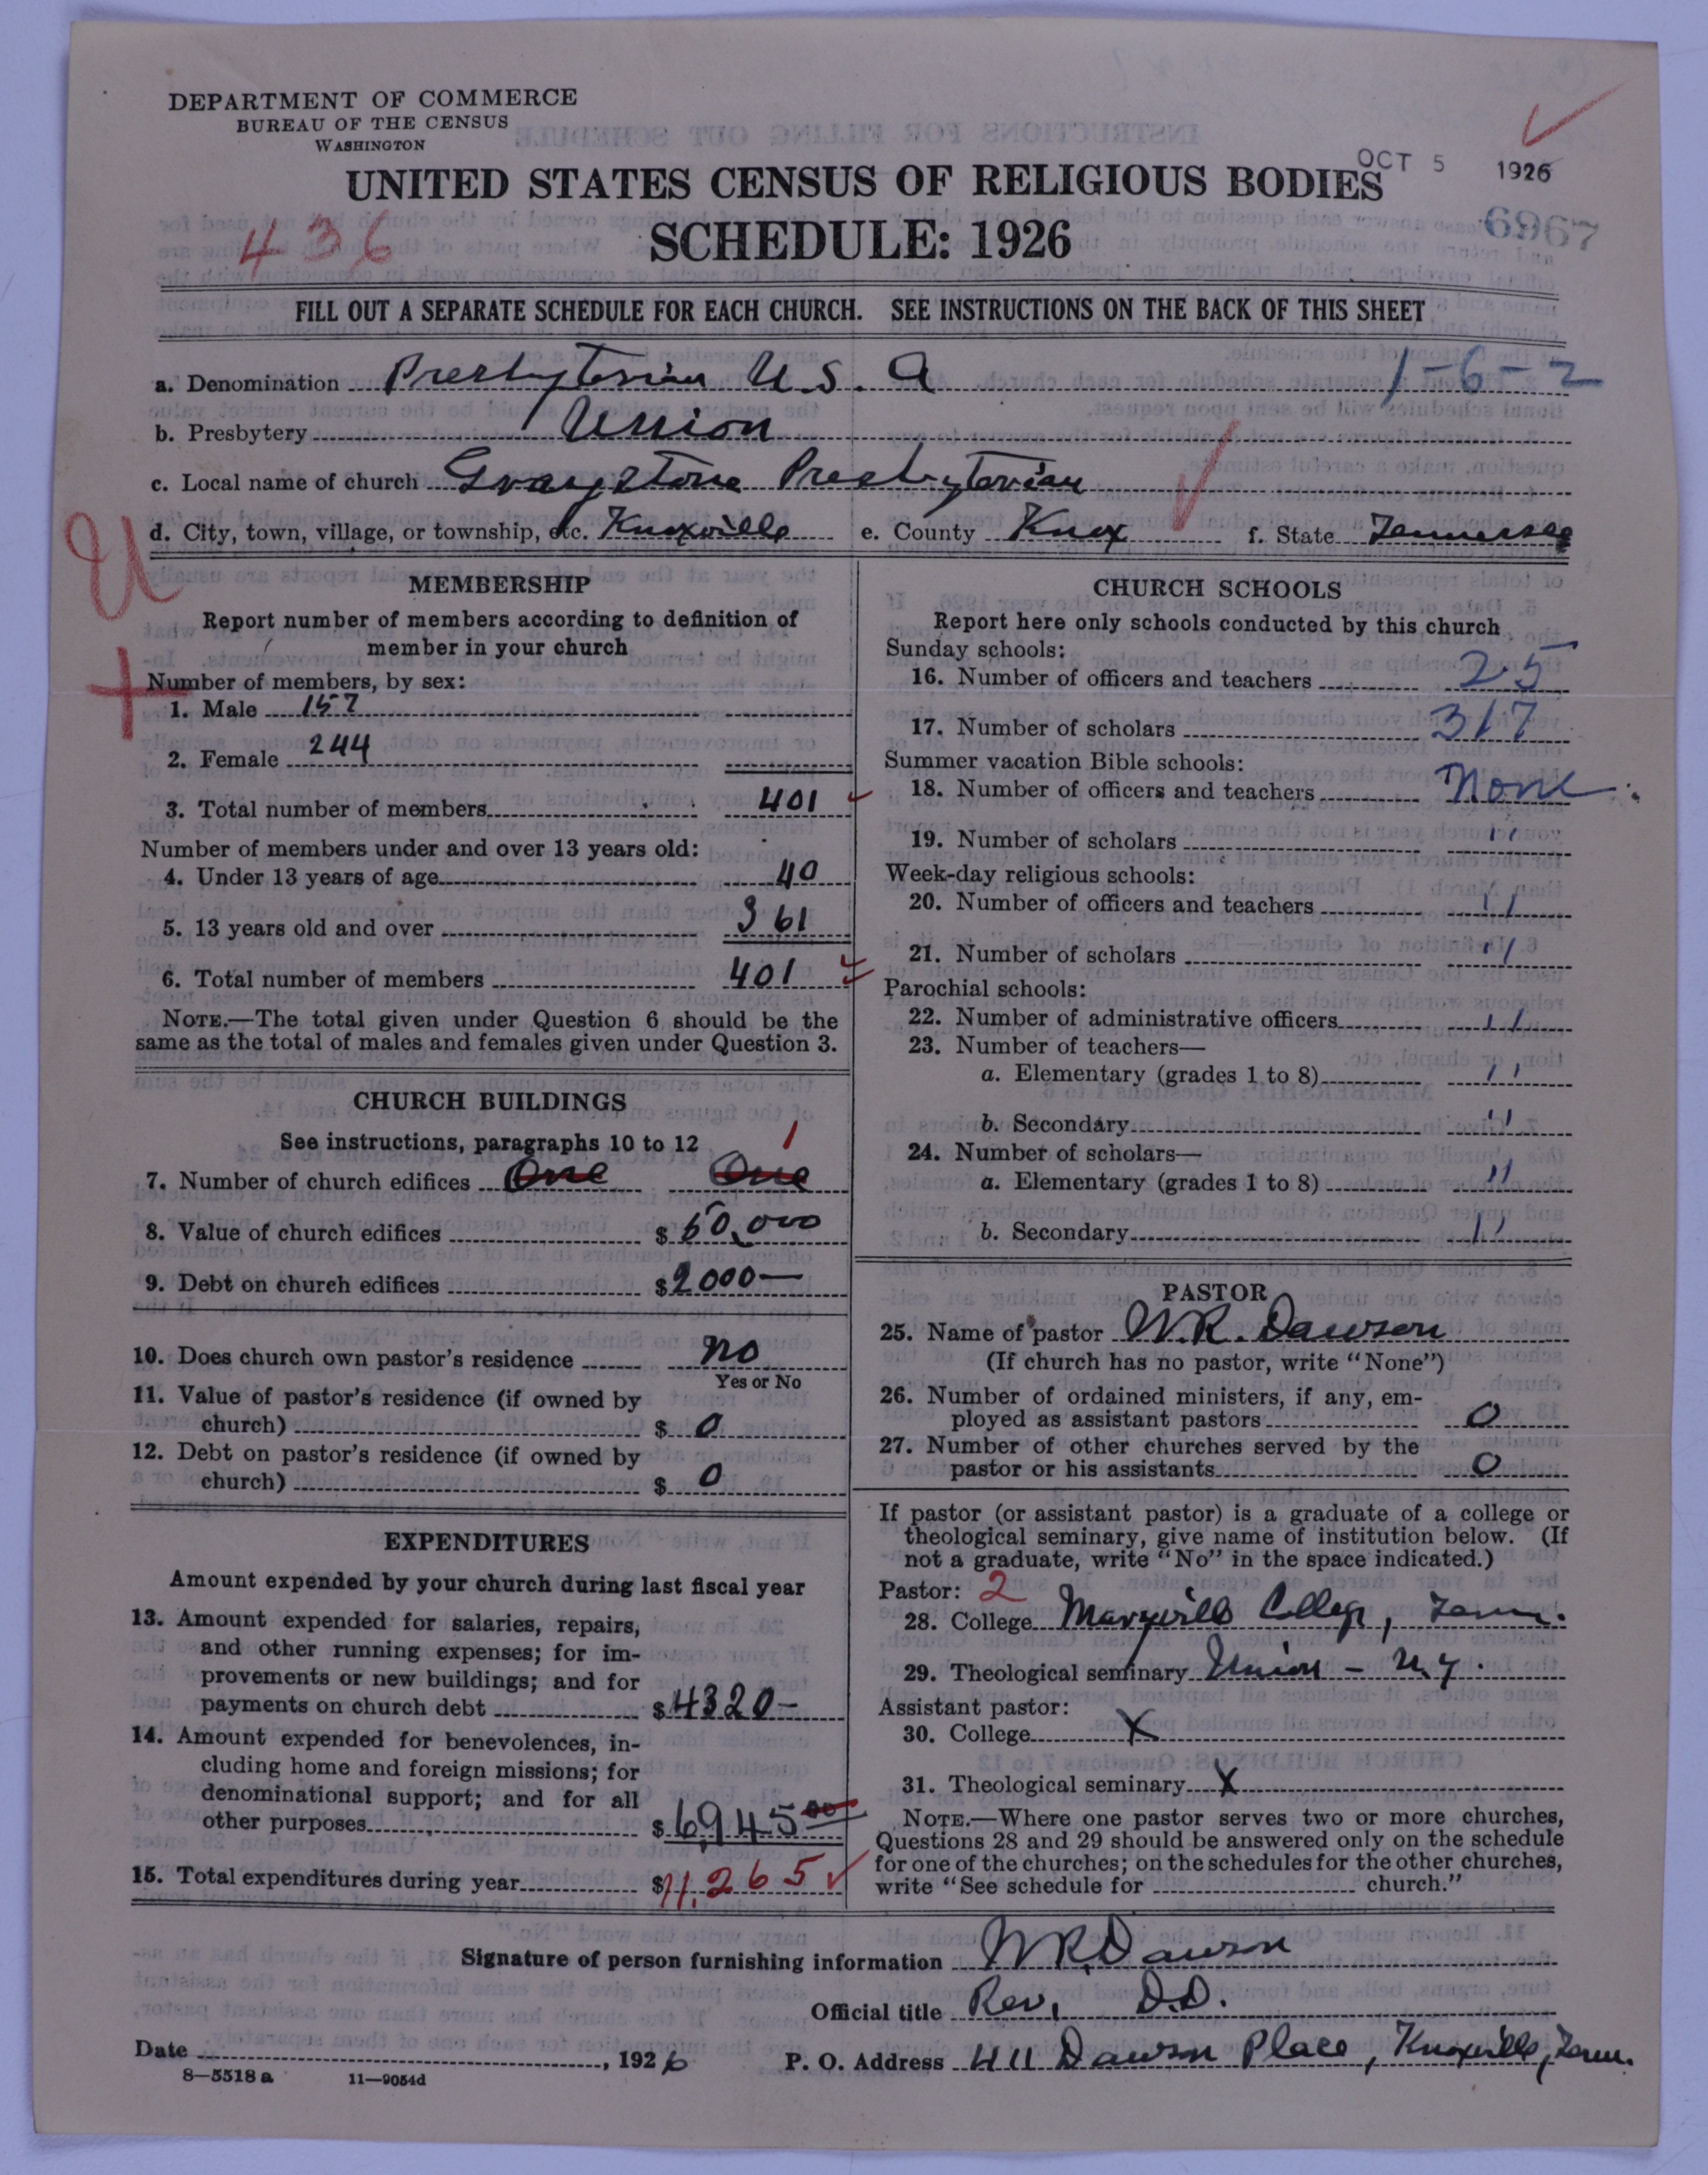 DEPARTMENT OF COMMERCE
BUREAU OF THE CENSUS
WASHINGTON
UNITED STATES CENSUS OF RELIGIOUS BODIES
OCT 5 1926
SCHEDULE: 1926
436
6967
FILL OUT A SEPARATE SCHEDULE FOR EACH CHURCH. SEE INSTRUCTIONS ON THE BACK OF THIS SHEET
a. Denomination Presbyterian U.S.A 1-6-2
b. Presbytery Union
c. Local name of church Graystone Presbyterian
d. City, town, village, or township, etc. Knoxville e. County Knox f. State Tennessee
U
+
MEMBERSHIP
Report number of members according to definition of
member in your church
Number of members, by sex:
1. Male 157
2. Female 244
3. Total number of members 401
Number of members under and over 13 years old:
4. Under 13 years of age 40
5. 13 years old and over 361
6. Total number of members 401
NOTE.—The total given under Question 6 should be the
same as the total of males and females given under Question 3.
CHURCH BUILDINGS
See instructions, paragraphs 10 to 12 1
7. Number of church edifices One One
8. Value of church edifices $ 50,000
9. Debt on church edifices $ 2000—
10. Does church own pastor's residence no
Yes or No
11. Value of pastor's residence (if owned by
church) $ 0
12. Debt on pastor's residence (if owned by
church) $ 0
EXPENDITURES
Amount expended by your church during last fiscal year
13. Amount expended for salaries, repairs,
and other running expenses; for im-
provements or new buildings; and for
payments on church debt $ 4320-
14. Amount expended for benevolences, in-
cluding home and foreign missions; for
denominational support; and for all
other purposes $ 6,945 00
15. Total expenditures during year $ 11,265
CHURCH SCHOOLS
Report here only schools conducted by this church
Sunday schools:
16. Number of officers and teachers 25
17. Number of scholars 317
Summer vacation Bible schools:
18. Number of officers and teachers None
19. Number of scholars "
Week-day religious schools:
20. Number of officers and teachers "
21. Number of scholars "
Parochial schools:
22. Number of administrative officers "
23. Number of teachers—
a. Elementary (grades 1 to 8) "
b. Secondary "
24. Number of scholars—
a. Elementary (grades 1 to 8) "
b. Secondary "
PASTOR
25. Name of pastor W.R. Dawson
(If church has no pastor, write "None")
26. Number of ordained ministers, if any, em-
ployed as assistant pastors 0
27. Number of other churches served by the
pastor or his assistants 0
If pastor (or assistant pastor) is a graduate of a college or
theological seminary, give name of institution below. (If
not a graduate, write "No" in the space indicated.)
Pastor: 2
28. College Maryville College, Tenn.
29. Theological seminary Union - N.Y.
Assistant pastor:
30. College X
31. Theological seminary X
NOTE.—Where one pastor serves two or more churches,
Questions 28 and 29 should be answered only on the schedule
for one of the churches; on the schedules for the other churches,
write "See schedule for church."
Signature of person furnishing information W R Dawson
Official title Rev. D.D.
Date , 1926 P. O. Address 411 Dawson Place, Knoxville, Tenn.
8—5518 a 11—9054d